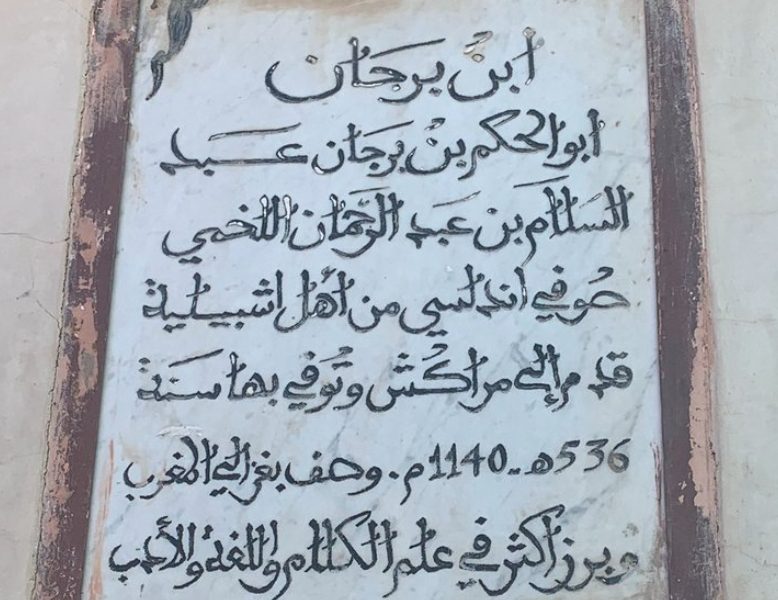 ابن برجان
ابو الحكم بن برجان عبد
السلام بن عبد الرحمان اللخمي
صوفي اندلسي من أهل اشبيلية
قدم إلى مراكش وتوفي بها سنة
536هـ - 1140م. وصف بغزالي المغرب
وبرز أكثر في علم الكلام واللغة والأدب